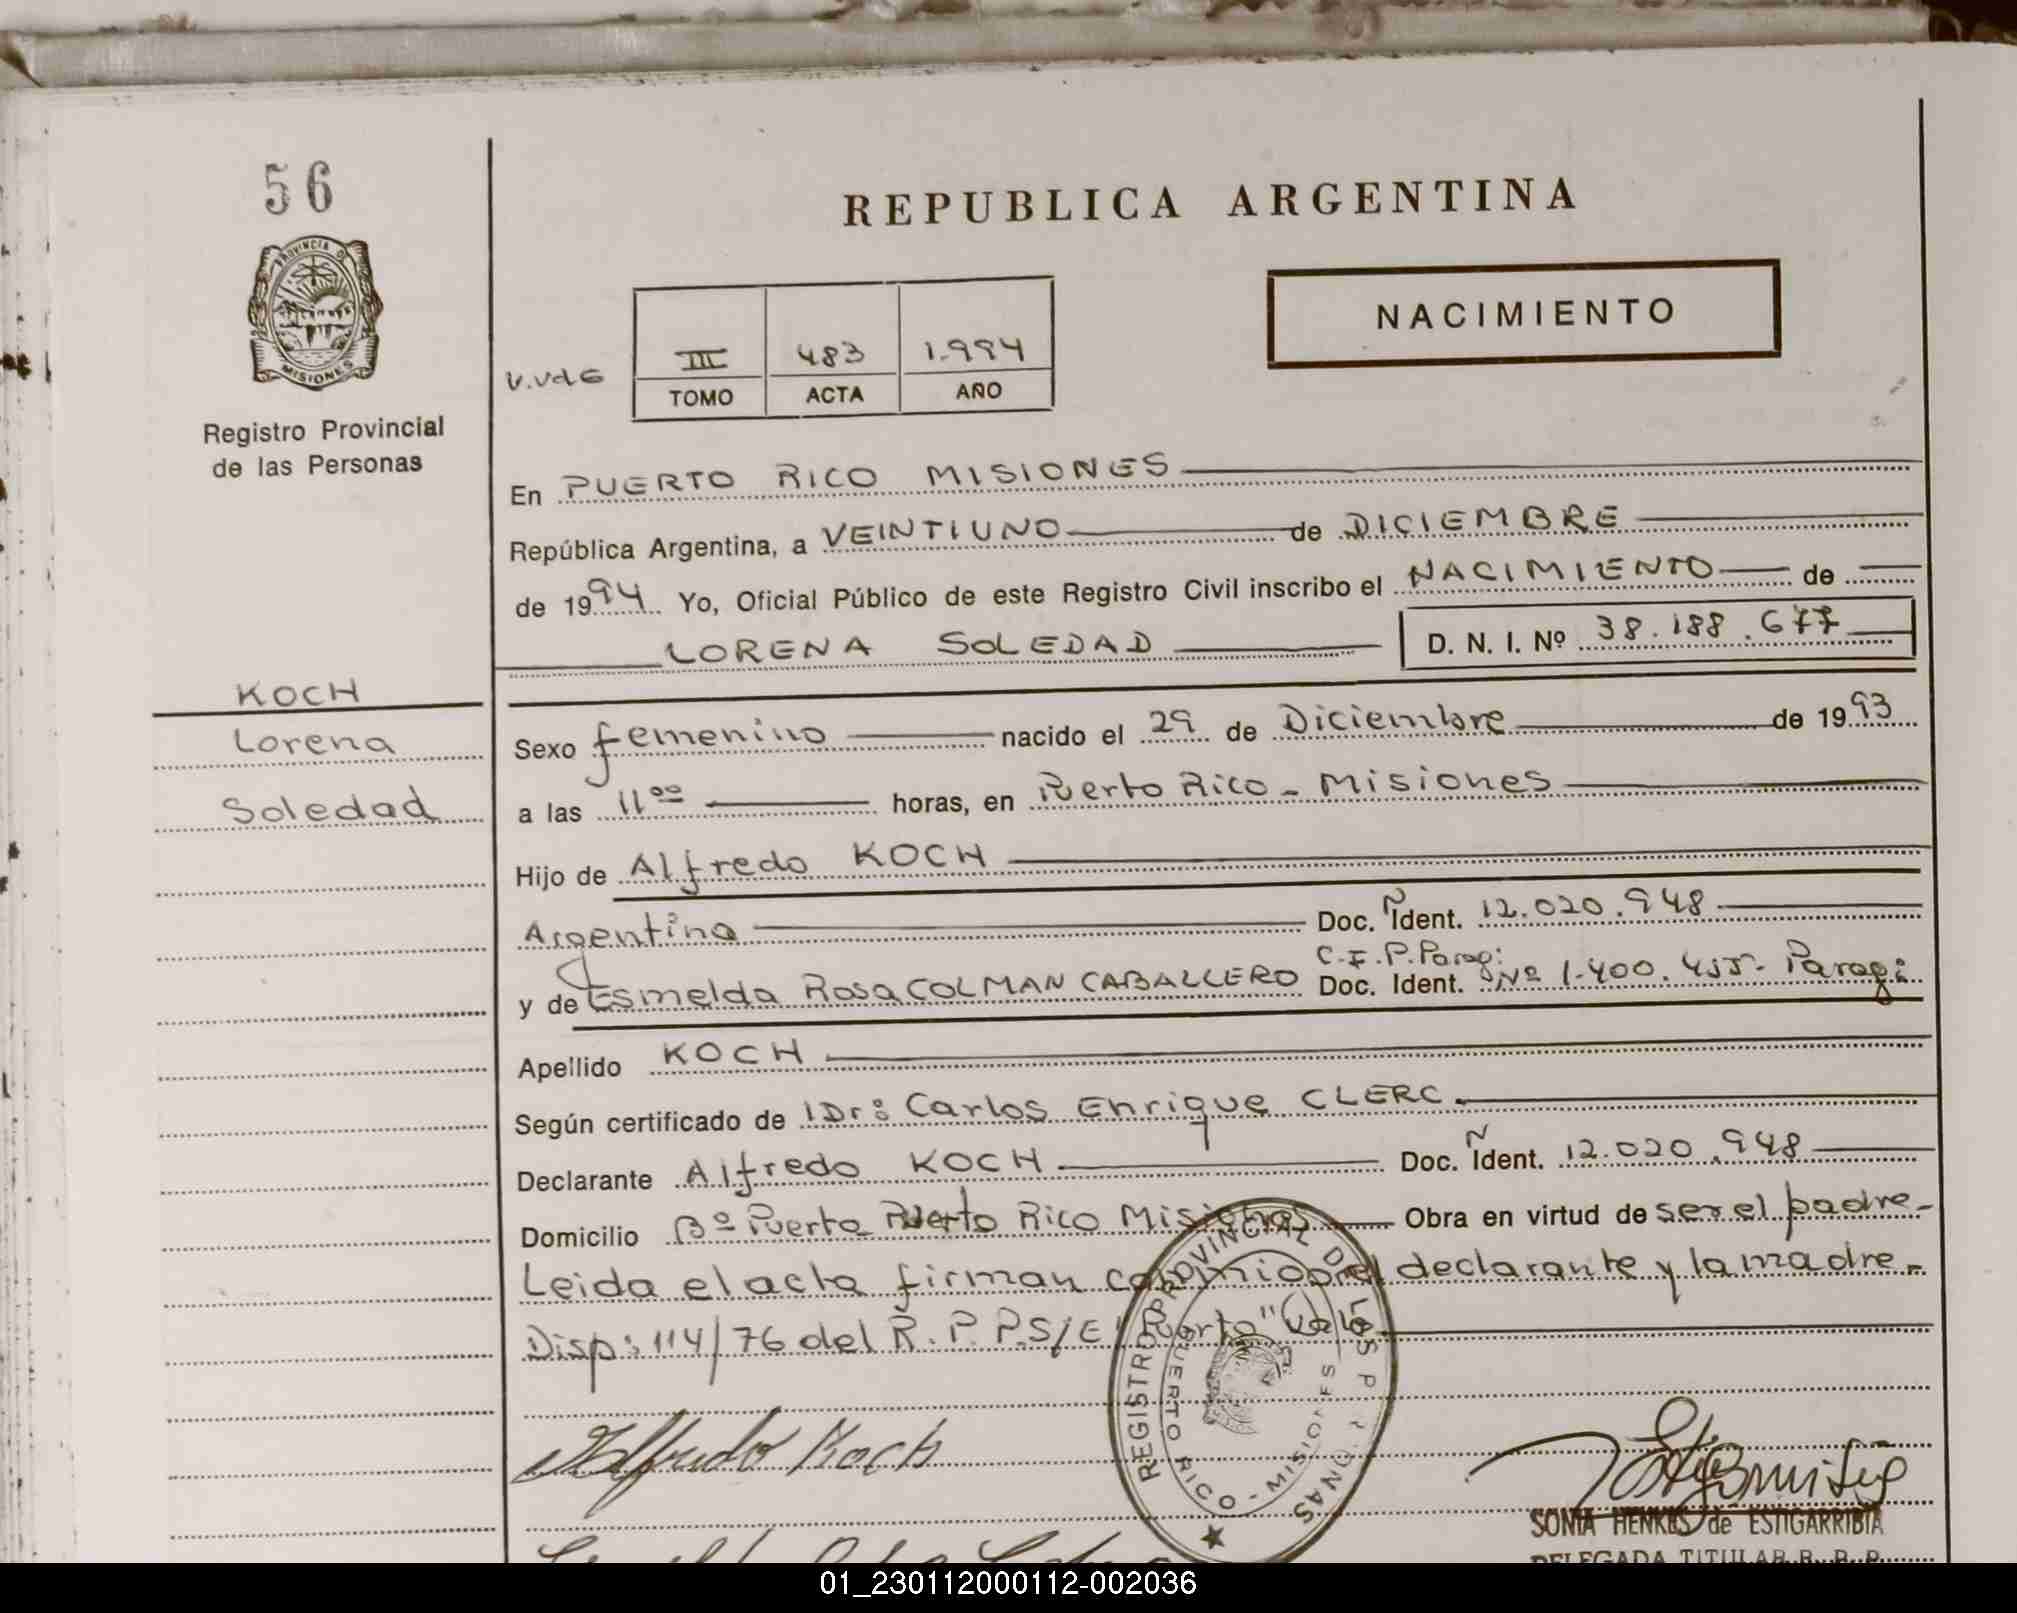 56
PROVINCIA DE
MISIONES
Registro Provincial
de las Personas
REPUBLICA ARGENTINA
NACIMIENTO
III 483 1.994
TOMO ACTA AÑO
En PUERTO RICO MISIONES
República Argentina, a VEINTIUNO de DICIEMBRE
de 1994 Yo, Oficial Público de este Registro Civil inscribo el NACIMIENTO de
LORENA SOLEDAD D. N. I. Nº 38.188.677
KOCH
Lorena
Soledad
Sexo femenino nacido el 29 de Diciembre de 1993
a las 11⁰⁰ horas, en Puerto Rico - Misiones
Hijo de Alfredo KOCH
Argentina Doc. Ñ Ident. 12.020.948
C.I.P. Parag:
y de Esmelda Rosa COLMAN CABALLERO Doc. Ident. Nº 1.400.455- Parag:
Apellido KOCH
Según certificado de Dr: Carlos Enrique CLERC.
Declarante Alfredo KOCH Doc. Ñ Ident. 12.020.948
Domicilio Bº Puerto Puerto Rico Misiones Obra en virtud de ser el padre-
Leida el acta firman conmigo el declarante y la madre-
Disp: 114/76 del R.P.P. S/E "Puerto" Vale
Alfredo Koch
REGISTRO PROVINCIAL DE LAS PERSONAS
PUERTO RICO - MISIONES
SONIA HENKES de ESTIGARRIBIA
DELEGADA TITULAR R. P. P.
01_230112000112-002036